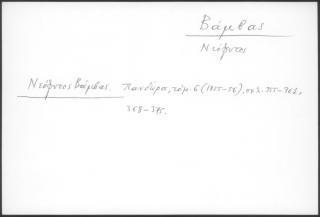 Βάμβας
Νεόφυτος
Νεόφυτος Βάμβας. Πανδώρα, τόμ. 6 (1855-56), σελ. 355-362,
368-375.